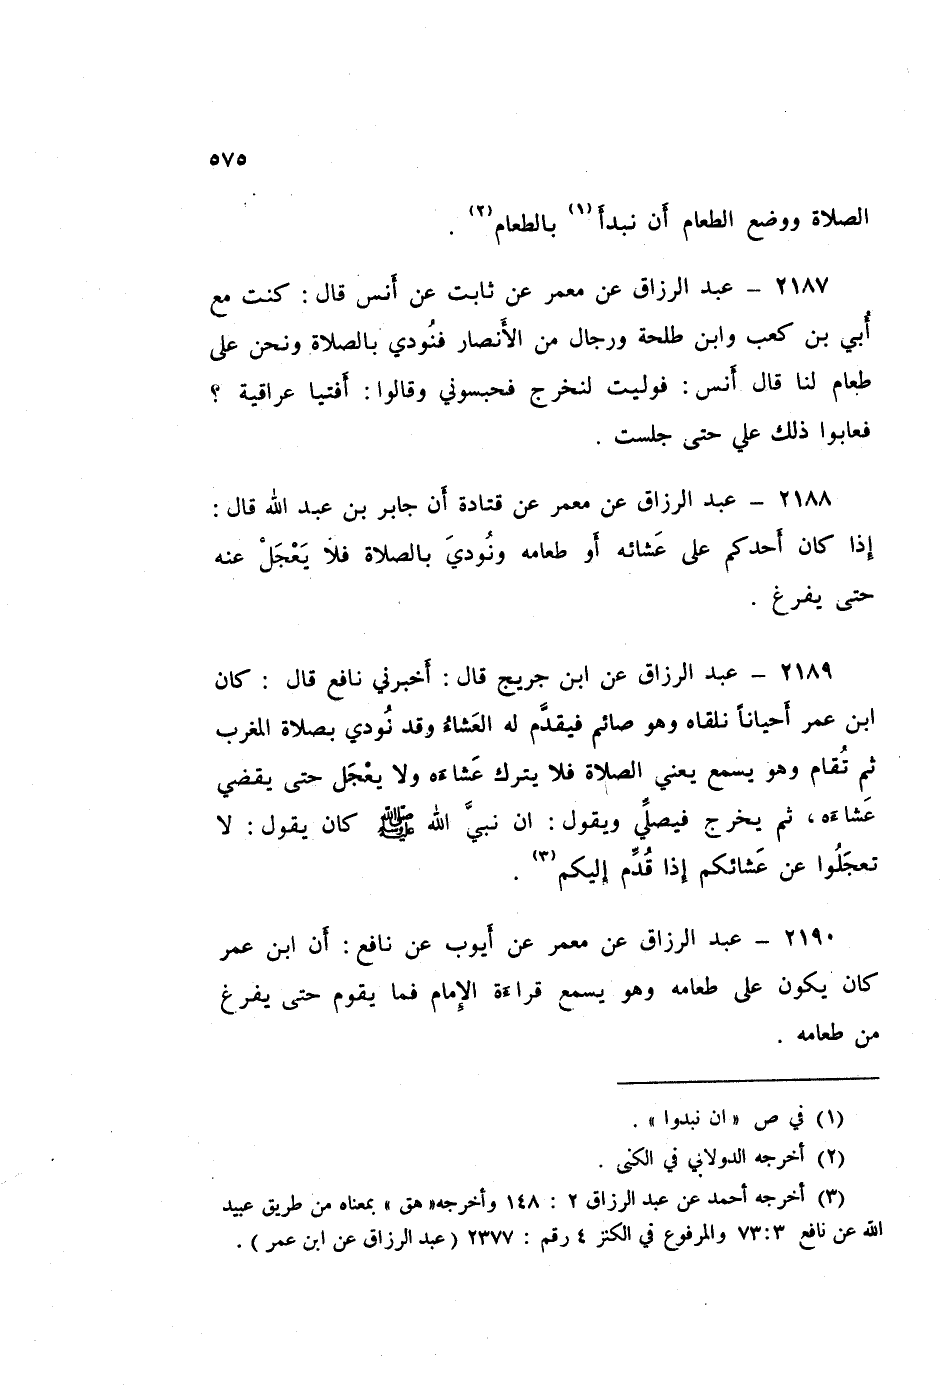 ٥٧٥
الصلاة ووضع الطعام أن نبدأ (١) بالطعام (٢) .
٢١٨٧ – عبد الرزاق عن معمر عن ثابت عن أنس قال : كنت مع
أُبي بن كعب وابن طلحة ورجال من الأنصار فنُودي بالصلاة ونحن على
طعام لنا قال أنس : فوليت لنخرج فحبسوني وقالوا : أفتيا عراقية ؟
فعابوا ذلك علي حتى جلست .
٢١٨٨ – عبد الرزاق عن معمر عن قتادة أن جابر بن عبد الله قال :
إذا كان أحدكم على عَشائه أو طعامه ونُوديَ بالصلاة فلا يَعْجَلْ عنه
حتى يفرغ .
٢١٨٩ – عبد الرزاق عن ابن جريج قال : أخبرني نافع قال : كان
ابن عمر أحياناً نلقاه وهو صائم فيقدَّم له العَشاءُ وقد نُودي بصلاة المغرب
ثم تُقام وهو يسمع يعني الصلاة فلا يترك عَشاءه ولا يعْجَل حتى يقضي
عَشاءه، ثم يخرج فيصلِّي ويقول : ان نبيَّ الله ﷺ كان يقول : لا
تعجَلُوا عن عَشائكم إذا قُدِّم إليكم (٣) .
٢١٩٠ – عبد الرزاق عن معمر عن أيوب عن نافع : أن ابن عمر
كان يكون على طعامه وهو يسمع قراءة الإمام فما يقوم حتى يفرغ
من طعامه .
(١) في ص « ان نبدوا » .
(٢) أخرجه الدولابي في الكنى .
(٣) أخرجه أحمد عن عبد الرزاق ٢ : ١٤٨ وأخرجه « هق » بمعناه من طريق عبيد
الله عن نافع ٣:٧٣ والمرفوع في الكنز ٤ رقم : ٢٣٧٧ ( عبد الرزاق عن ابن عمر ) .